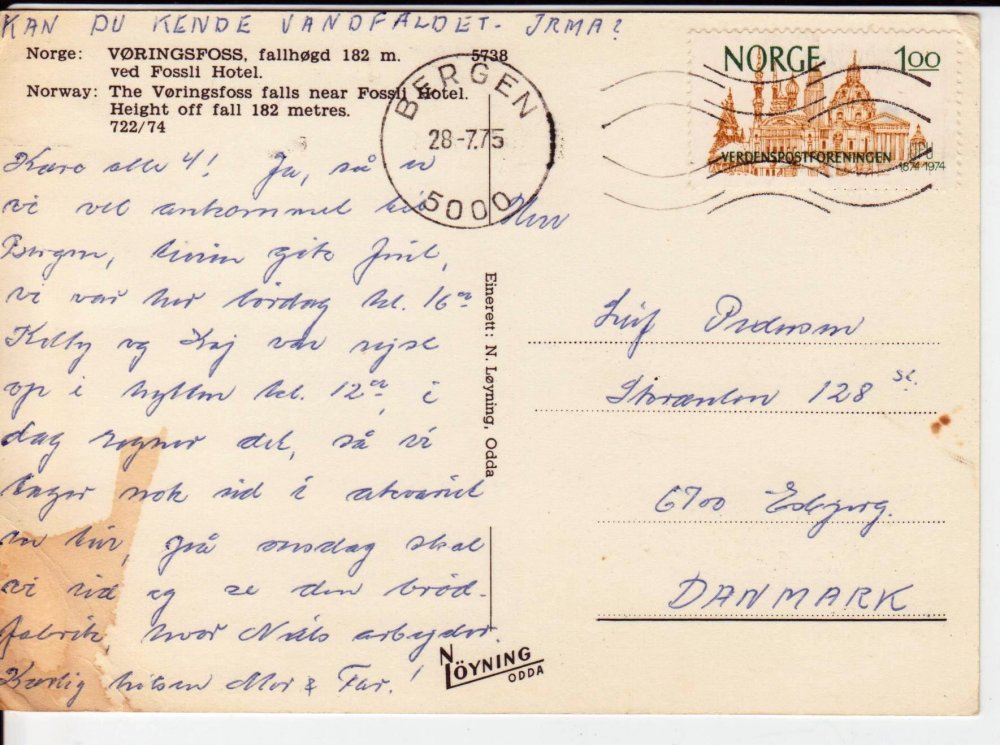 KAN DU KENDE VANDFALDET. IRMA?
Norge: VØRINGSFOSS, fallhøgd 182 m. 5738
ved Fossli Hotel.
Norway: The Vøringsfoss falls near Fossli Hotel.
Height off fall 182 metres.
722/74
BERGEN
28-7.75
5000
NORGE 1.00
VERDENSPOSTFORENINGEN UPU
1874-1974
Kære alle 4! Ja, så er
vi vel ankommet til
Bergen, turen gik fint,
vi var her lørdag kl. 16
og Kaj var
op i hytten kl. 12 i
dag regner det, så vi
tager nok ud i akvariet
på onsdag skal
vi ud og se den brød-
fabrik, hvor Niels arbejder.
Kærlig hilsen Mor & Far!
Einerett: N. Løyning, Odda
N LÖYNING
ODDA
Herr
Leif Pedersen
128 st.
6700 Esbjerg.
DANMARK